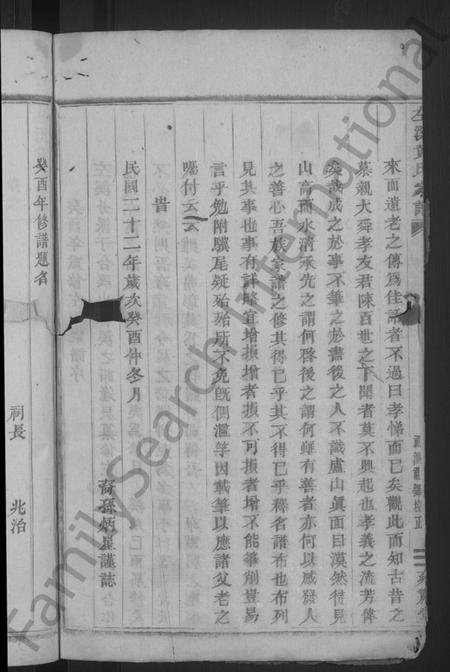 來而遺老之傳爲佳話者不過曰孝悌而已矣觀此而知古昔之
慕親大舜孝友君陳百世之下聞者莫不興起也孝義之流芳傳
矣哉成之於事不筆之於書後之人不識盧山眞面目漠然得見
山高而水淸承先之謂何啓後之謂何雖有善者亦何以感發人
之善心吾族家譜之修其得已乎其不得已乎釋名譜布也布列
見其事也事有詳略宜增損增者損不可損者增不能筆削豈易
言乎勉附驥尾疑殆殆所不免旣側濫竽因載筆以應諸父老之
囑付云云
昔
民國二十二年歲次癸酉仲冬月
裔孫炳星謹誌
癸酉年修譜題名
祠長
兆治
FamilySearch International